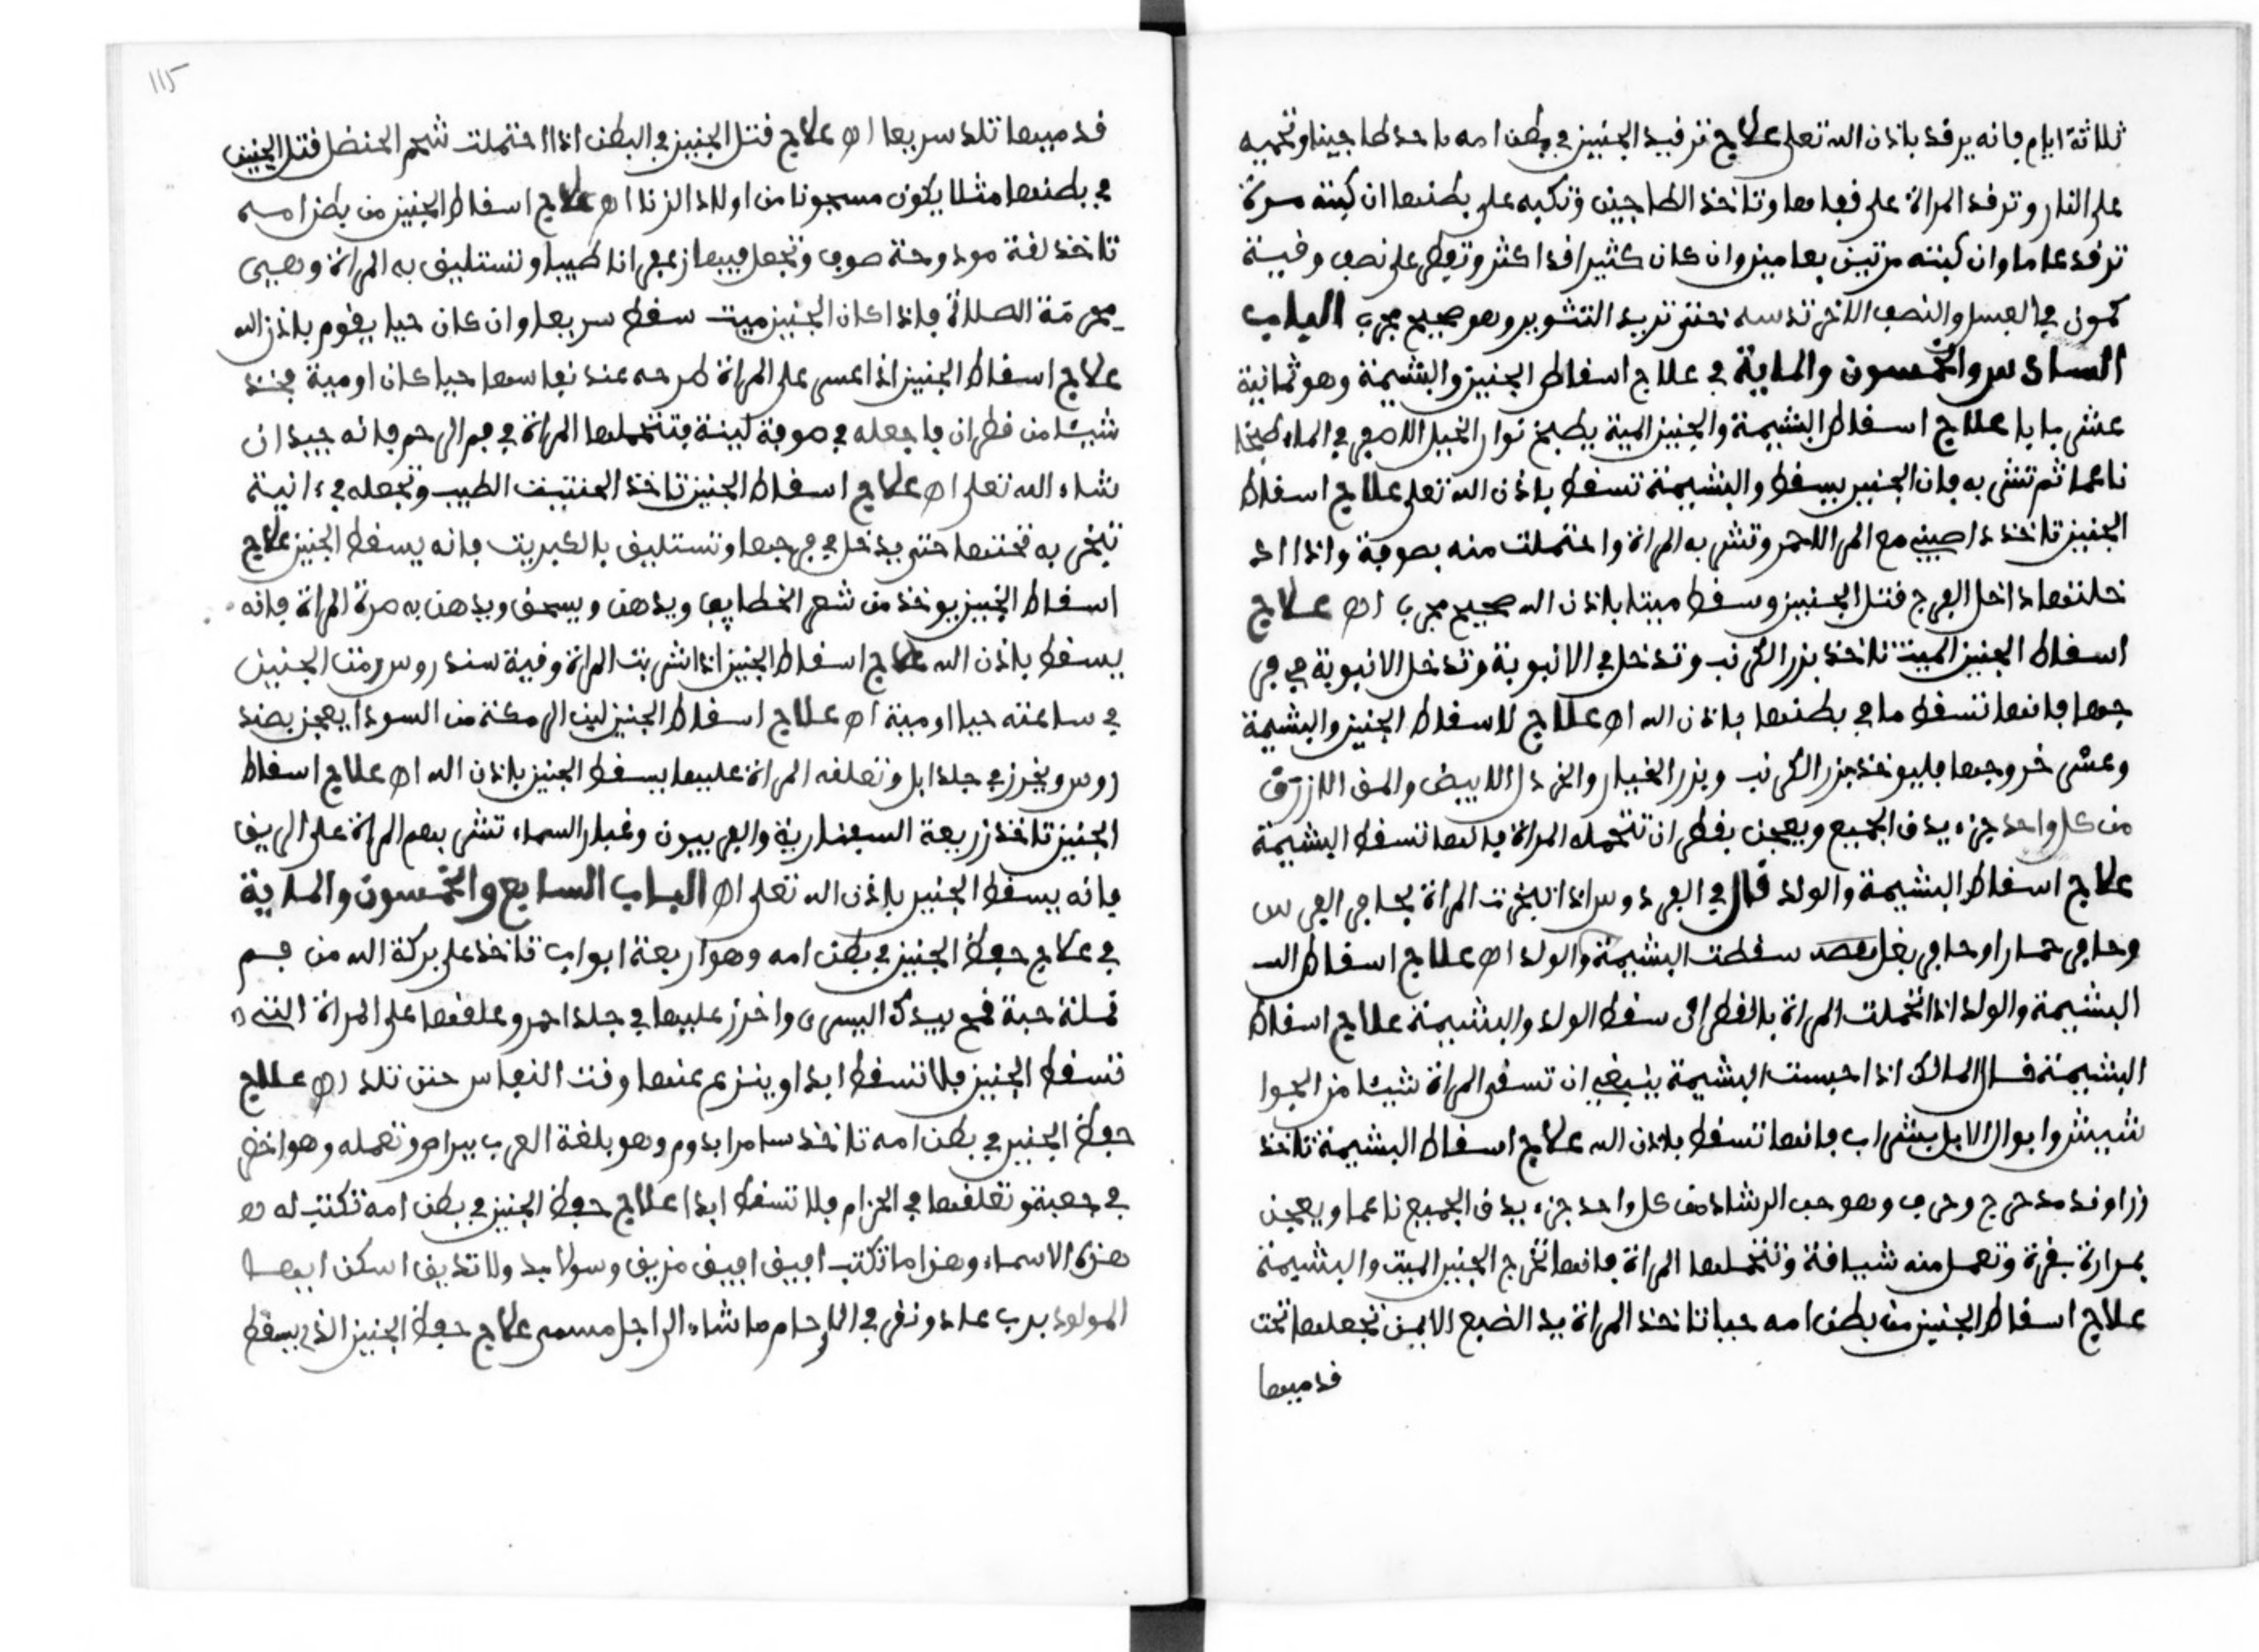 ثلاثة ايام فانه يرقد باذن الله تعلى علاج ترفيد الجنين في بطن امه تاخذ طاجينا وتحميه
على النار وترفد المراة على قفاها وتاخذ الطاجين وتكبه على بطنها ان كبته مرة
ترفد عاما وان كبته مرتين بعامين وان كان كثيرا فداكثر وتفطر على نصف وقية
كمون في العسل والنصف الاخر تدسه حتى تريد التشوير وهو صحيح مجرب الباب
السادس والخمسون والماية في علاج اسقاط الجنين والبشيمة وهو ثمانية
عشر بابا علاج اسقاط البشيمة والجنين المية يطبخ نوار الخيل الاصفر في الماء طبخا
ناعما ثم تشربه فان الجنين يسقط والبشيمة تسقط باذن الله تعلى علاج اسقاط
الجنين تاخذ مع المر الاحمر وتشربه المراة واحتملت منه بصوفة واذا اد
خلتها داخل الفرج قتل الجنين وسقط ميتا باذن الله صحيح مجرب اه علاج
اسقاط الجنين الميت تاخذ بزر الكرنب وتدخل في الانبوبة وتدخل الانبوبة في فر
جها فانها تسقط ما في بطنها باذن الله اه علاج لاسقاط الجنين والبشيمة
وعشر خروجها فليوخذ بزر الكرنب وبزر الخيار والخردل الابيض والمف الازرق
من كل واحد جزء يدق الجميع ويعجن بقطران تتحمله المراة فانها تسقط البشيمة
علاج اسقاط البشيمة والولد قال في الفردوس اذا تبخرت المراة بحافر الفرس
وحافر حمار او حافر بغل سقطت البشيمة والولد اه علاج اسقاط الب
البشيمة والولد اذا تحملت المراة بالقطران سقط الولد والبشيمة علاج اسقاط
البشيمة قال المالك اذا احبست البشيمة ينبغي ان تسقى المراة شيئا من الجوا
شيش وابوال الابل بشراب فانها تسقط باذن الله علاج اسقاط البشيمة تاخذ
زراوند مدحرج وحرف وهو حب الرشاد من كل واحد جزء يدق الجميع ناعما ويعجن
بمرارة بقرة وتعمل منه شيافة وتتحملها المراة فانها تخرج الجنين الميت والبشيمة
علاج اسقاط الجنين من بطن امه حيا تاخذ المراة يد الضبع الايمن تجعلها تحت
قدميها
115
قدميها تلد سريعا اه علاج قتل الجنين في البطن اذا احتملت شحم الحنضل قتل الجنين
في بطنها مثلا يكون مسجونا من اولاد الزنا اه علاج اسقاط الجنين من بطن امه
تاخذ لفة مودوحة صوف وتجعل فيها زعفرانا طيبا وتستليف به المراة وهي
محرمة الصلاة فاذا كان الجنين ميت سقط سريعا وان كان حيا يقوم باذن الله
علاج اسقاط الجنين اذا عسر على المراة طرحه عند نفاسها حيا كان او مية فخذ
شيئا من قطران فاجعله في صوفة لينة فتتحملها المراة في فم الرحم فانه جيد ان
شاء الله تعلى اه علاج اسقاط الجنين تاخذ الحنتيت الطيب وتجعله في انية
تبخر به تحتها حتى يدخل في فرجها وتستليف بالكبريت فانه يسقط الجنين علاج
اسقاط الجنين يوخذ من شعر الخطايف ويدهن ويسحق ويدهن به صرة المراة فانه
يسقط باذن الله علاج اسقاط الجنين اذا شربت المراة وقية سندروس رمت الجنين
في ساعته حيا او ميتة اه علاج اسقاط الجنين لين الرمكة من السودا يعجز بصند
روس ويخرز في جلد ابل وتعلقه المراة عليها يسقط الجنين باذن الله اه علاج اسقاط
الجنين تاخذ زريعة السفنارية والفربيون وغبار السماء تشربهم المراة على الريق
فانه يسقط الجنين باذن الله تعلى اه الباب السابع والخمسون والماية
في علاج حفظ الجنين في بطن امه وهو اربعة ابواب تاخذ على بركة الله من فم
نملة حبة قمح بيدك اليسرى واخرز عليها في جلد احمر وعلقها على المراة التي
تسقط الجنين فلا تسقط ابدا وينزع عنها وقت النفاس حتى تلد اه علاج
حفظ الجنين في بطن امه تاخذ سامرابدوم وهو بلغة العرب وتعمله وهو اخضر
في جعبة وتعلقها في الحزام فلا تسقط ابدا علاج حفظ الجنين في بطن امه تكتب له
هذه الاسماء وهذا ما تكتب افيف افيف مزيف وسولا بد ولا تذيف اسكن ايها
المولود برب عاد ونقر في الارحام ما نشاء الى اجل مسمى علاج حفظ الجنين الذي يسقط